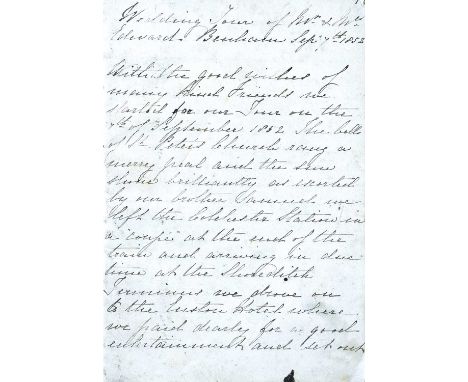 Wedding Tour of Mr. & Mrs.
Edward Benham Sep. 7th 1852
With the good wishes of
many kind Friends we
started for our Tour on the
7th of September 1852 The bells
of St Peters Church rang a
merry peal and the sun
shone brilliantly as escorted
by our brother Samuel we
left the Colchester Station in
a coupé at the end of the
train and arriving in due
time at the Shoreditch
Terminus we drove on
to the Euston Hotel where
we paid dearly for a good
entertainment and set out